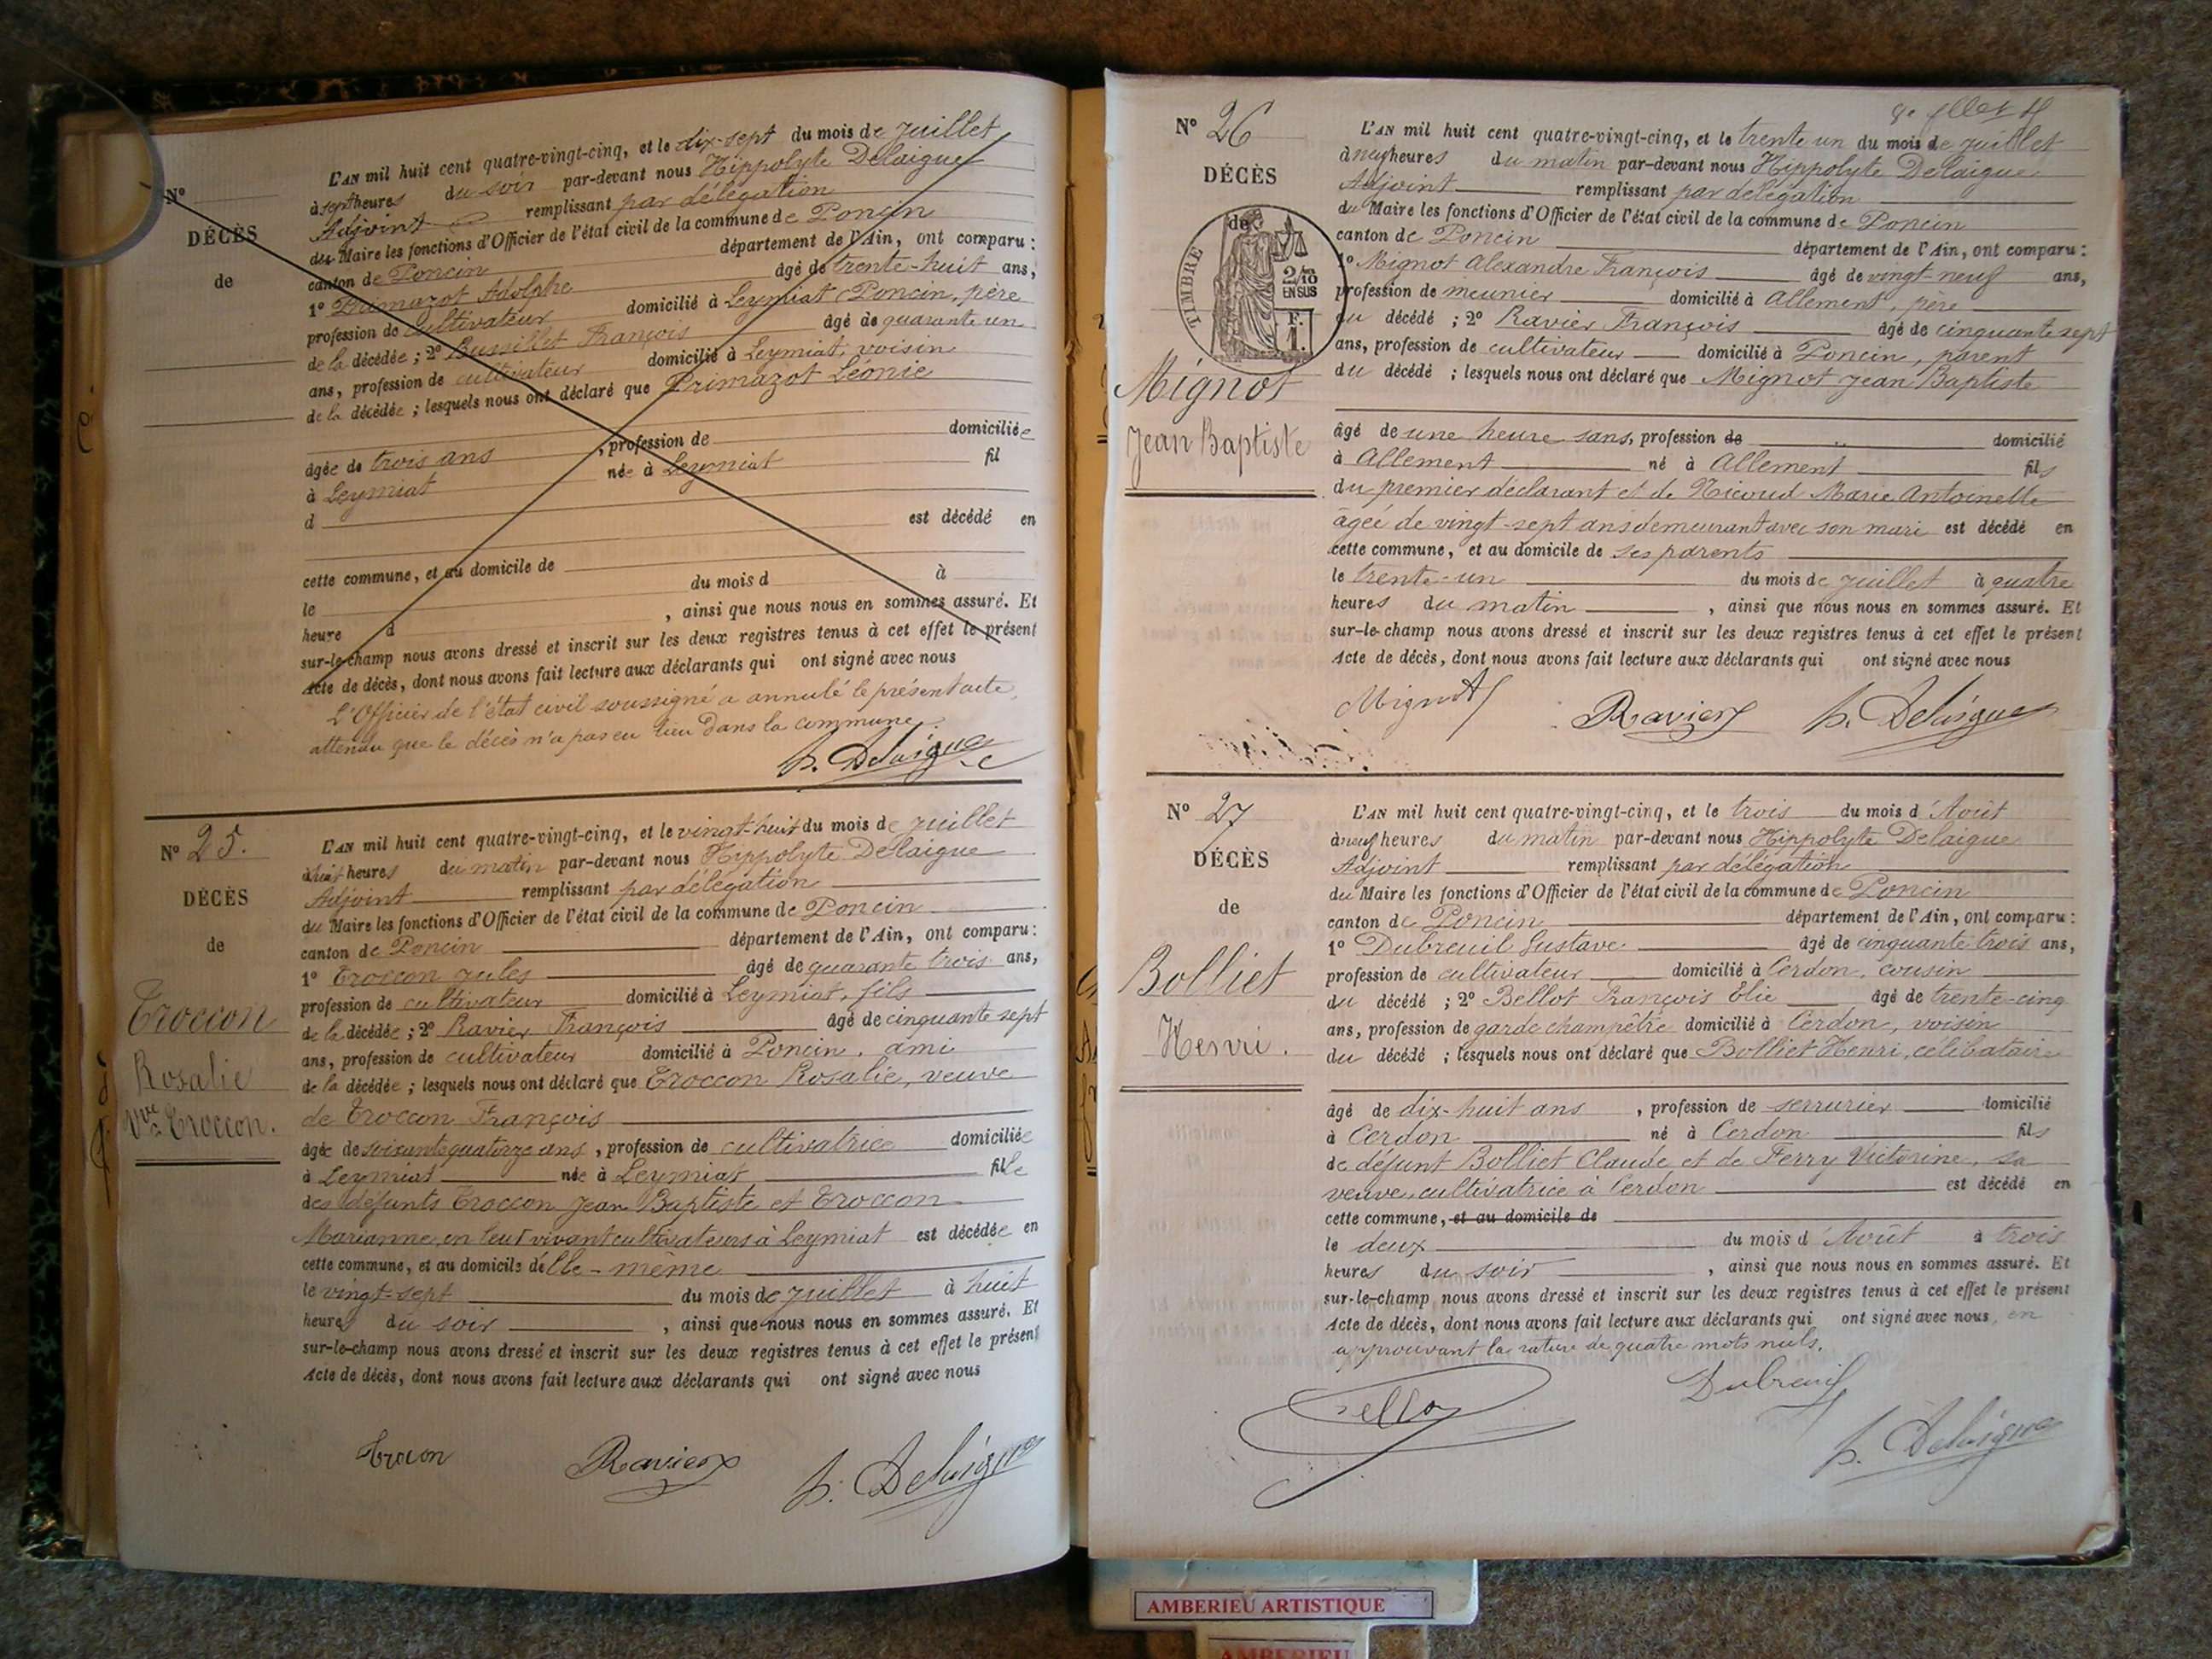 L'AN mil huit cent quatre-vingt-cinq, et le dix-sept du mois de juillet
à sept heures du soir par-devant nous Hippolyte Delaigue
Adjoint remplissant par délégation
du Maire les fonctions d'Officier de l'état civil de la commune de Poncin
canton de Poncin département de l'Ain, ont comparu :
1° Primazot Adolphe âgé de trente-huit ans,
profession de cultivateur domicilié à Leymiat Poncin, père
de la décédée ; 2° Bussillet François âgé de quarante un
ans, profession de cultivateur domicilié à Leymiat, voisin
de la décédée ; lesquels nous ont déclaré que Primazot Léonie
âgée de trois ans , profession de domiciliée
à Leymiat née à Leymiat fil
d
est décédé en
cette commune, et au domicile de
le du mois d à
heure d , ainsi que nous nous en sommes assuré. Et
sur-le-champ nous avons dressé et inscrit sur les deux registres tenus à cet effet le présent
Acte de décès, dont nous avons fait lecture aux déclarants qui ont signé avec nous
L'Officier de l'état civil soussigné a annulé le présent acte,
attendu que le décès n'a pas eu lieu dans la commune.
h. Delaigue
N°
DÉCÈS
de
N° 25.
DÉCÈS
de
Troccon
Rosalie
Vve Troccon.
L'AN mil huit cent quatre-vingt-cinq, et le vingt-huit du mois de juillet
à huit heures du matin par-devant nous Hippolyte Delaigue
Adjoint remplissant par délégation
du Maire les fonctions d'Officier de l'état civil de la commune de Poncin
canton de Poncin département de l'Ain, ont comparu :
1° Troccon Jules âgé de quarante trois ans,
profession de cultivateur domicilié à Leymiat, fils
de la décédée ; 2° Ravier François âgé de cinquante sept
ans, profession de cultivateur domicilié à Poncin, ami
de la décédée ; lesquels nous ont déclaré que Troccon Rosalie, veuve
de Troccon François
âgée de soixante quatorze ans , profession de cultivatrice domiciliée
à Leymiat née à Leymiat fille
des défunts Troccon Jean Baptiste et Troccon
Marianne, en leur vivant cultivateurs à Leymiat est décédée en
cette commune, et au domicile d'elle-même
le vingt-sept du mois de juillet à huit
heures du soir , ainsi que nous nous en sommes assuré. Et
sur-le-champ nous avons dressé et inscrit sur les deux registres tenus à cet effet le présent
Acte de décès, dont nous avons fait lecture aux déclarants qui ont signé avec nous
Trocon Ravier h. Delaigue
N° 26
DÉCÈS
de
TIMBRE
2/10
EN SUS
F.
1.
Mignot
Jean Baptiste
L'AN mil huit cent quatre-vingt-cinq, et le trente un du mois de juillet
à neuf heures du matin par-devant nous Hippolyte Delaigue
Adjoint remplissant par délégation
du Maire les fonctions d'Officier de l'état civil de la commune de Poncin
canton de Poncin département de l'Ain, ont comparu :
1° Mignot Alexandre François âgé de vingt-neuf ans,
profession de meunier domicilié à Allement, père
du décédé ; 2° Ravier François âgé de cinquante sept
ans, profession de cultivateur domicilié à Poncin, parent
du décédé ; lesquels nous ont déclaré que Mignot Jean Baptiste
âgé de une heure sans, profession de domicilié
à Allement né à Allement fils
du premier déclarant et de Nicoud Marie Antoinette
âgée de vingt-sept ans demeurant avec son mari est décédé en
cette commune, et au domicile de ses parents
le trente-un du mois de juillet à quatre
heures du matin , ainsi que nous nous en sommes assuré. Et
sur-le-champ nous avons dressé et inscrit sur les deux registres tenus à cet effet le présent
Acte de décès, dont nous avons fait lecture aux déclarants qui ont signé avec nous
Mignot Ravier h. Delaigue
N° 27
DÉCÈS
de
Bolliet
Henri.
L'AN mil huit cent quatre-vingt-cinq, et le trois du mois d'Août
à neuf heures du matin par-devant nous Hippolyte Delaigue
Adjoint remplissant par délégation
du Maire les fonctions d'Officier de l'état civil de la commune de Poncin
canton de Poncin département de l'Ain, ont comparu :
1° Dubreuil Gustave âgé de cinquante trois ans,
profession de cultivateur domicilié à Cerdon, cousin
du décédé ; 2° Bellot François Elie âgé de trente-cinq
ans, profession de garde champêtre domicilié à Cerdon, voisin
du décédé ; lesquels nous ont déclaré que Bolliet Henri, célibataire
âgé de dix-huit ans , profession de serrurier domicilié
à Cerdon né à Cerdon fils
de défunt Bolliet Claude et de Ferry Victorine, sa
veuve, cultivatrice à Cerdon est décédé en
cette commune, et au domicile de
le deux du mois d'Août à trois
heures du soir , ainsi que nous nous en sommes assuré. Et
sur-le-champ nous avons dressé et inscrit sur les deux registres tenus à cet effet le présent
Acte de décès, dont nous avons fait lecture aux déclarants qui ont signé avec nous, en
approuvant la rature de quatre mots nuls.
Bellot Dubreuil
h. Delaigue
AMBERIEU ARTISTIQUE
AMBERIEU